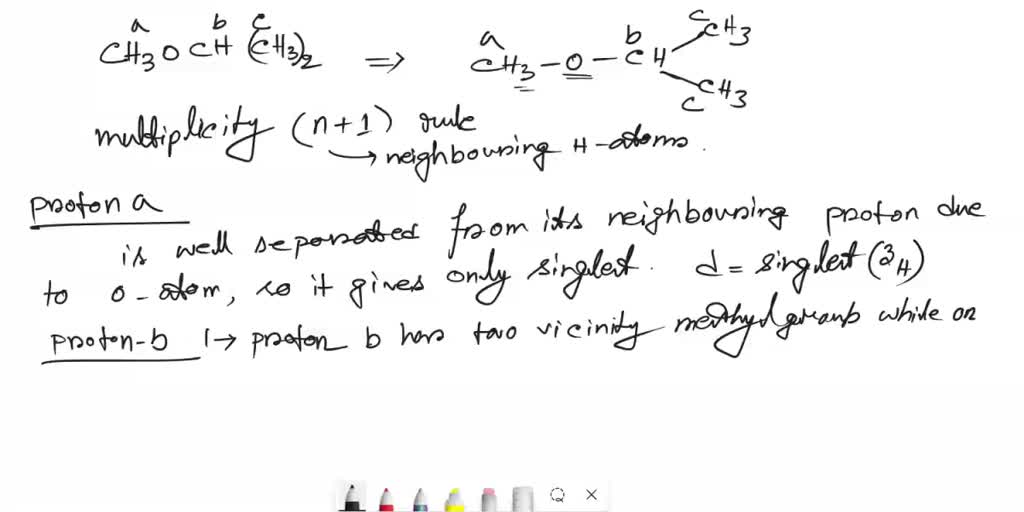 a b c
CH3OCH(CH3)2 ⇒ CH3-O-CH CH3 CH3
a b c c
multiplicity (n+1) rule
→ neighbouring H-atoms.
proton a
is well separated from its neighbouring proton due
to O-atom, so it gives only singlest. d = singlest (3H)
proton-b 1→ proton b has two vicinity methyl groups while on